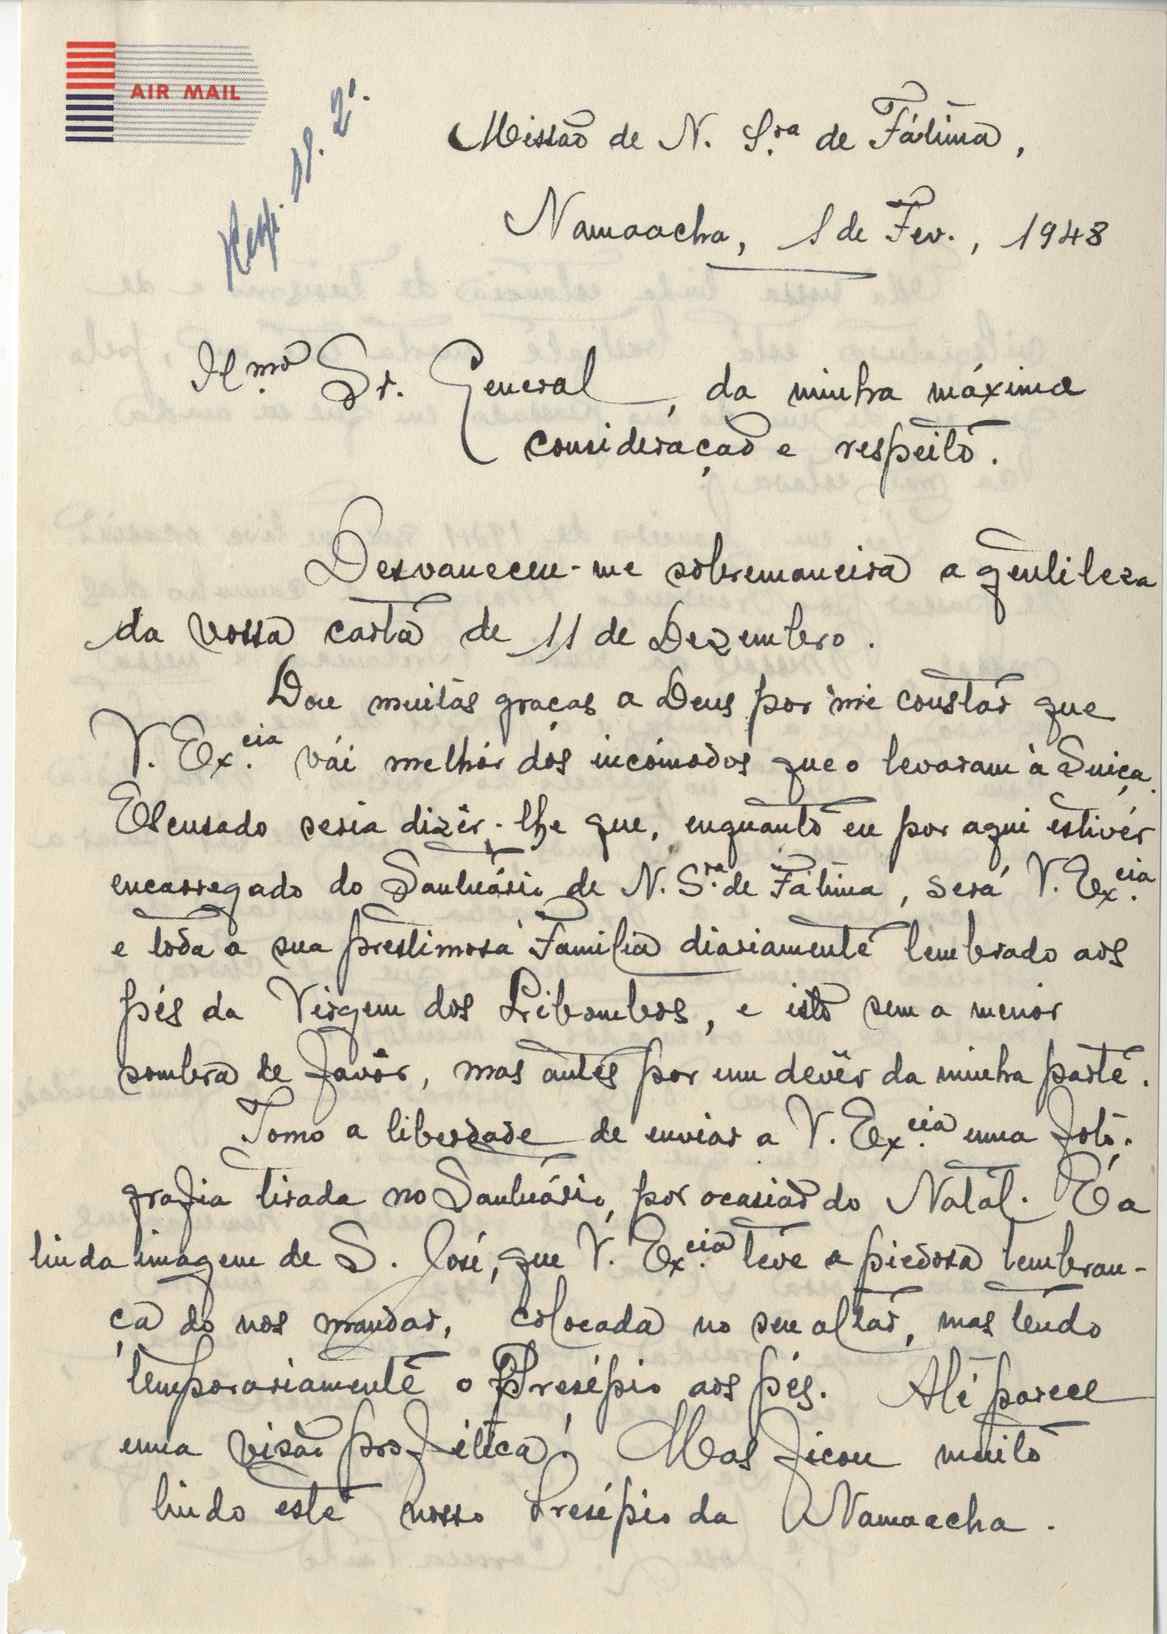 AIR MAIL
Resp. 11. 2º.
Missão de N. S.ra de Fátima,
Namaacha, 1 de Fev., 1948
Il.mo Sr. General, da minha máxima
consideração e respeito.
Desvaneceu-me sobremaneira a gentileza
da vossa carta de 11 de Dezembro.
Dou muitas graças a Deus por me constar que
V. Ex.cia vái melhór dos incómodos que o levaram à Suiça.
Escusado seria dizêr-lhe que, enquanto eu por aqui estivér
encarregado do Santuário de N. S.ra de Fátima, será V. Ex.cia
e toda a sua prestimosa Familia diariamente lembrado aos
pés da Virgem dos Libombos, e isto sem a menor
sombra de favôr, mas antes por um devêr da minha parte.
Tomo a liberdade de enviar a V. Ex.cia uma foto-
grafia tirada no Santuário, por ocasião do Natal. É a
linda imagem de S. José, que V. Ex.cia teve a piedosa lembran-
ça do nos mandar, colocada no seu altar, mas tendo
temporariamente o Presépio aos pés. Até parece
uma visão profética! Mas ficou muito
lindo este nosso Presépio da Namaacha.